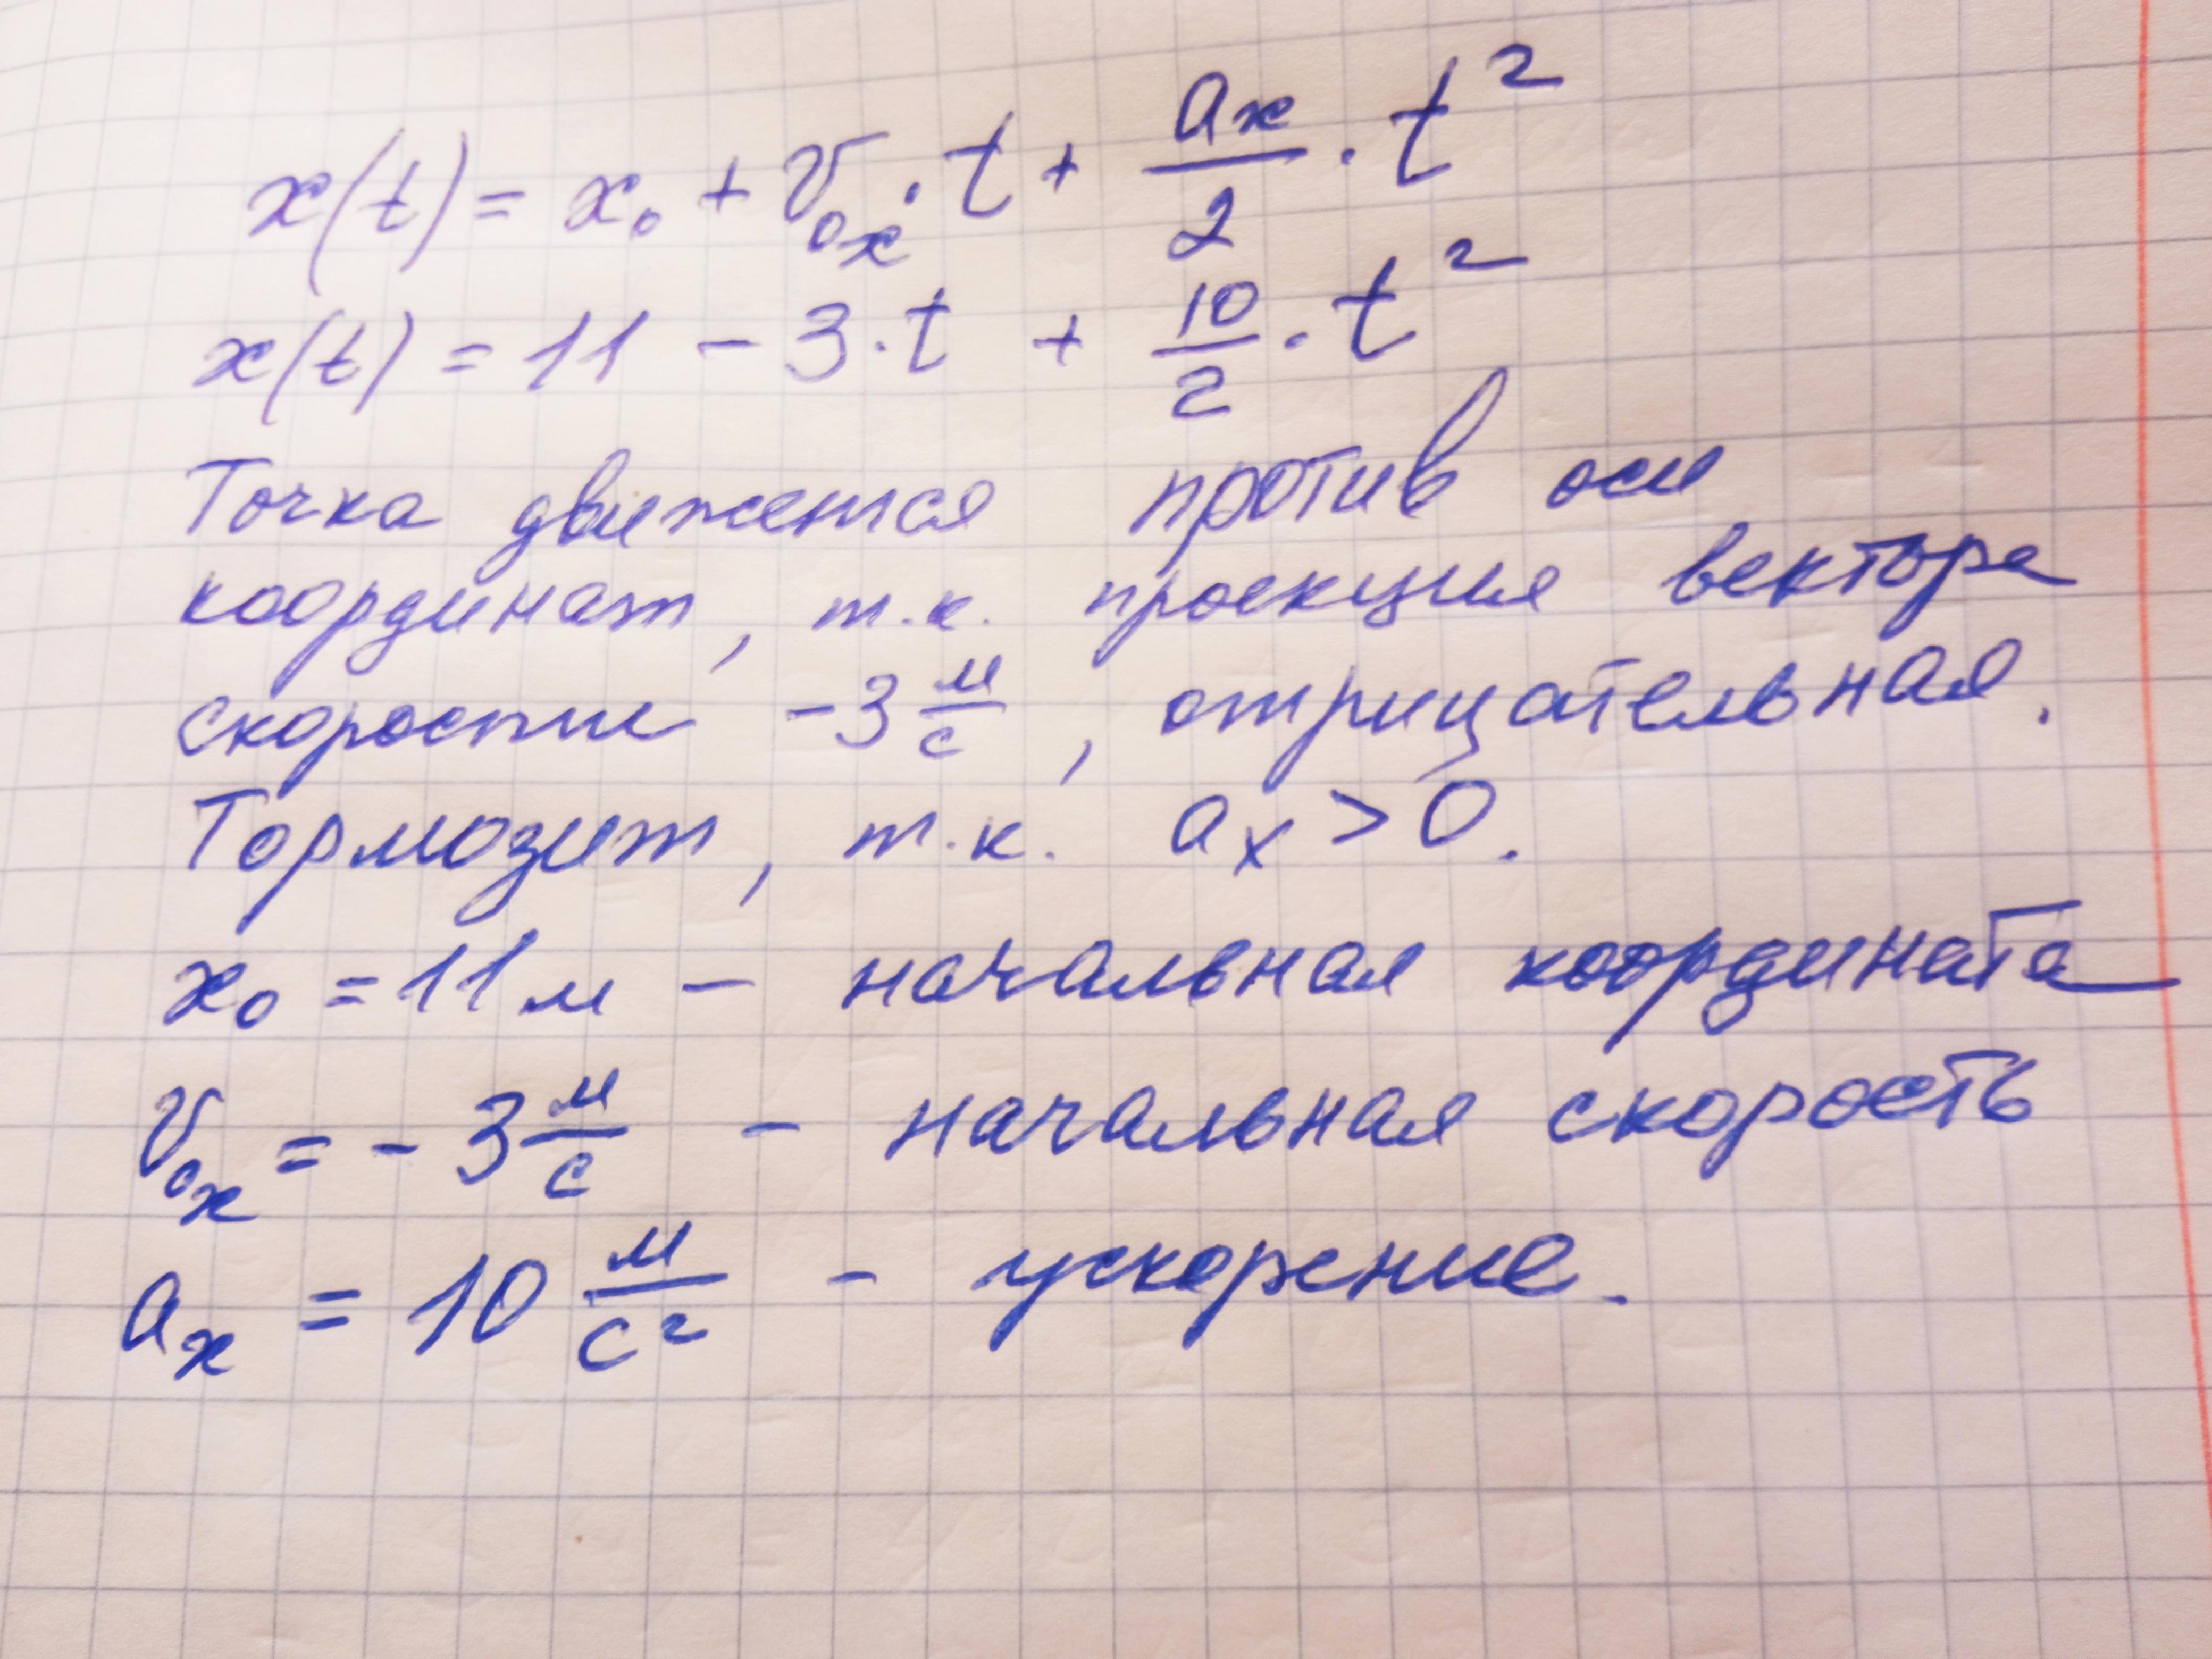 x(t) = x₀ + V₀ₓ · t + aₓ/2 · t²
x(t) = 11 - 3 · t + 10/2 · t²
Точка движется против оси
координат, т.к. проекция вектора
скорости -3 м/с, отрицательная.
Тормозит, т.к. aₓ > 0.
x₀ = 11 м - начальная координата
V₀ₓ = - 3 м/с - начальная скорость
aₓ = 10 м/с² - ускорение.